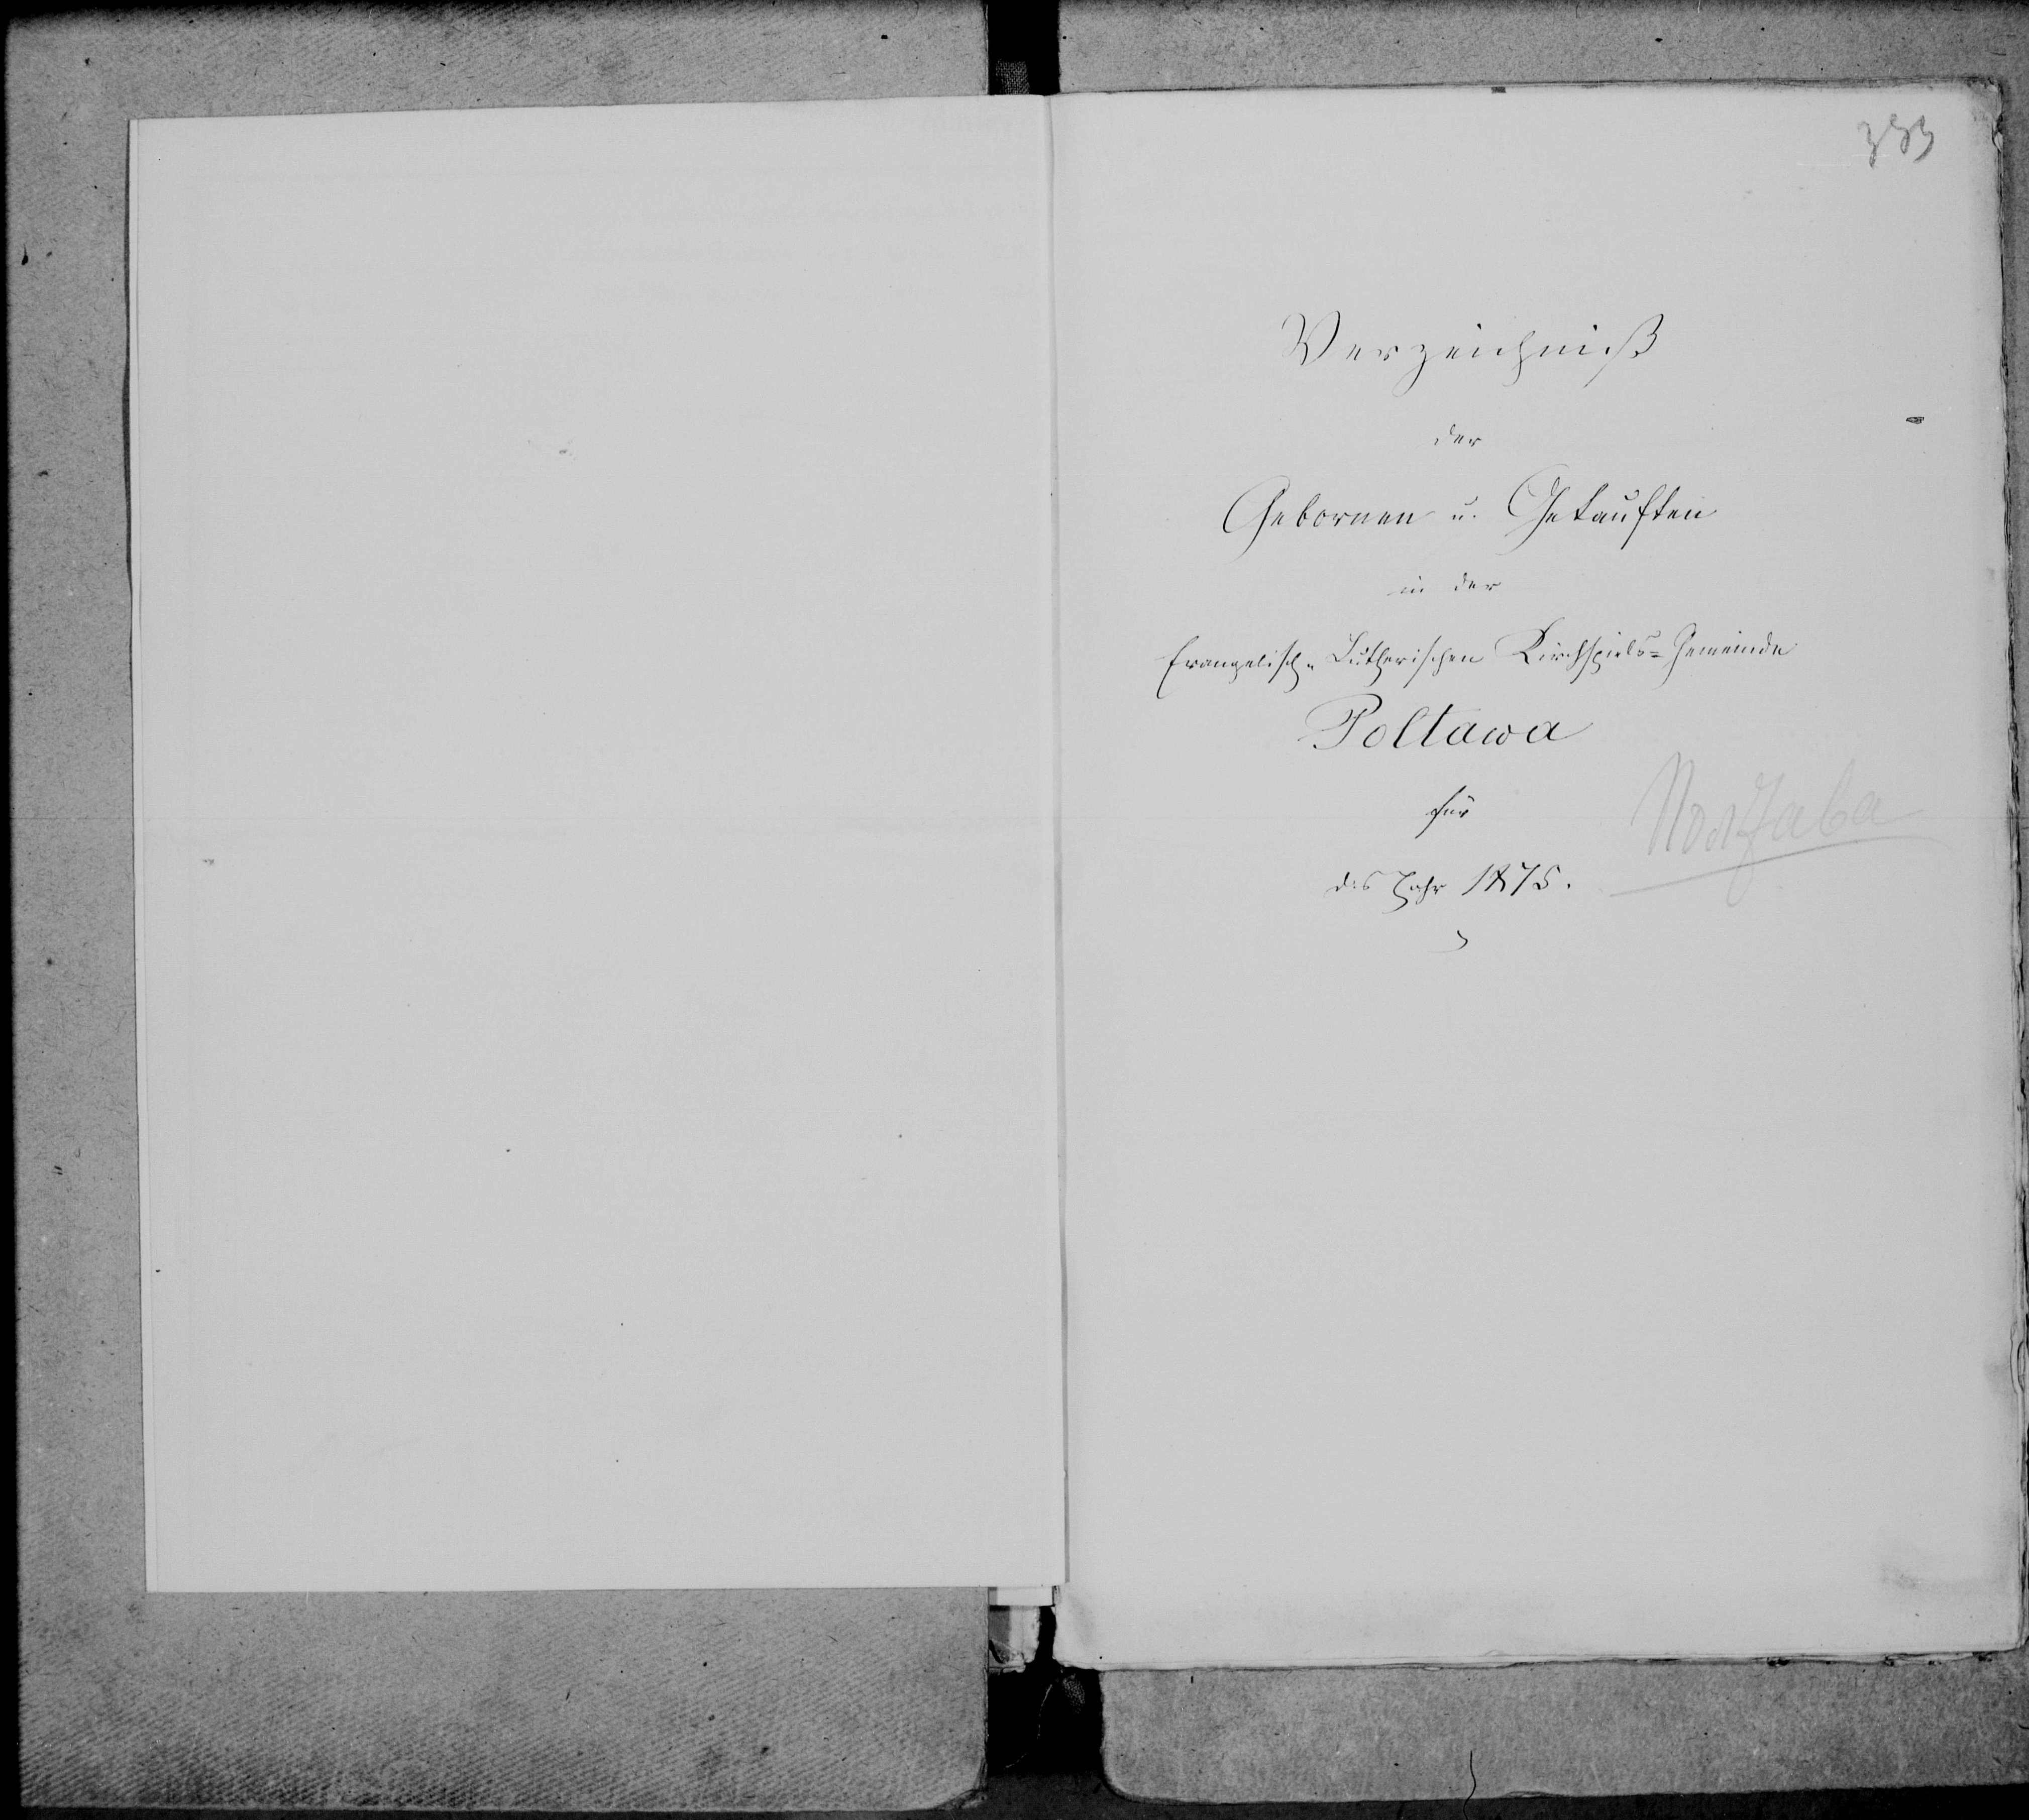 Verzeichniß
der
Gebornen u. Getauften
in der
Evangelisch-Lutherischen Kirchspiels-Gemeinde
Poltawa
für
das Jahr 1875.
Полтава